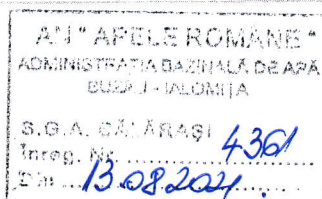 A.N "APELE ROMÂNE"
ADMINISTRAȚIA BAZINALĂ DE APĂ
BUZĂU - IALOMIȚA
S.G.A. CĂLĂRAȘI
Înreg. Nr. ........ 4361
Din ... 13.08.2021.